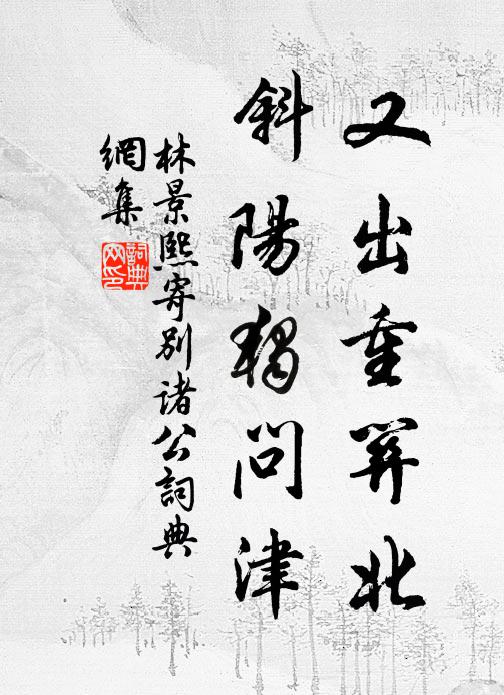 又出重關北
斜陽獨問津
林景熙寄別諸公詞典
網集
詞典網印